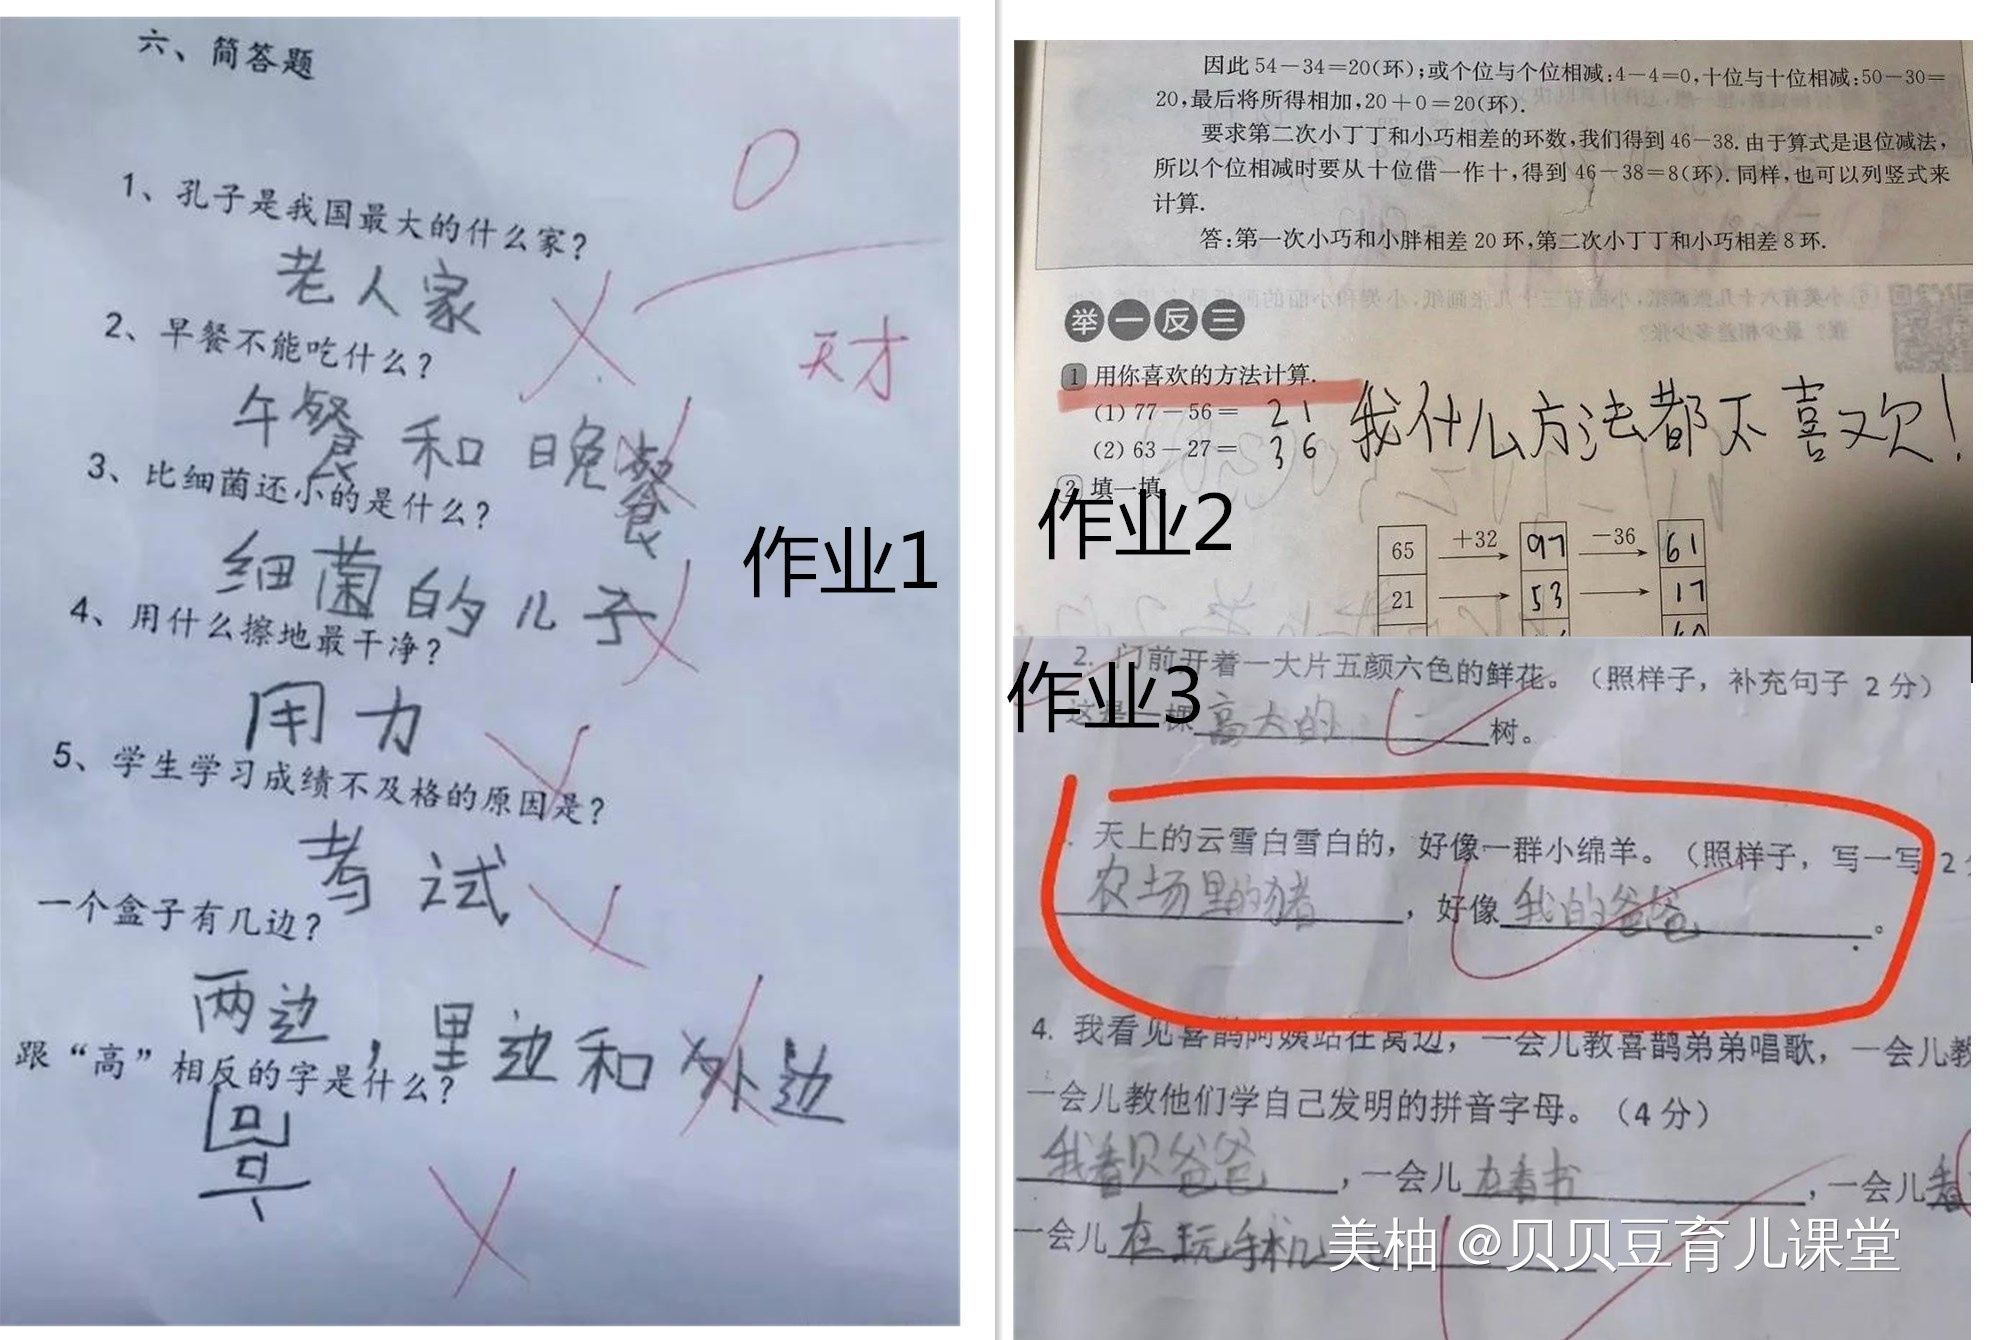 六、简答题
0
天才
1、孔子是我国最大的什么家？
老人家
2、早餐不能吃什么？
午餐和晚餐
3、比细菌还小的是什么？
细菌的儿子
作业1
4、用什么擦地最干净？
用力
5、学生学习成绩不及格的原因是？
考试
一个盒子有几边？
两边，里边和外边
跟“高”相反的字是什么？
因此54－34＝20(环)；或个位与个位相减：4－4＝0，十位与十位相减：50－30＝
20，最后将所得相加，20＋0＝20(环).
要求第二次小丁丁和小巧相差的环数，我们得到46－38.由于算式是退位减法，
所以个位相减时要从十位借一作十，得到46－38＝8(环).同样，也可以列竖式来
计算.
答：第一次小巧和小胖相差20环，第二次小丁丁和小巧相差8环.
举一反三
1 用你喜欢的方法计算.
(1) 77－56＝ 21
(2) 63－27＝ 36
我什么方法都不喜欢！
2 填一填
作业2
65 +32 97 −36 61
21 53 17
作业3
2. 门前开着一大片五颜六色的鲜花。（照样子，补充句子 2分）
这是一棵高大的树。
天上的云雪白雪白的，好像一群小绵羊。（照样子，写一写 2
农场里的猪，好像我的爸爸。
4. 我看见喜鹊阿姨站在窝边，一会儿教喜鹊弟弟唱歌，一会儿教
一会儿教他们学自己发明的拼音字母。（4分）
我看见爸爸，一会儿在看书，一会儿看
一会儿在玩手机
美柚 @贝贝豆育儿课堂